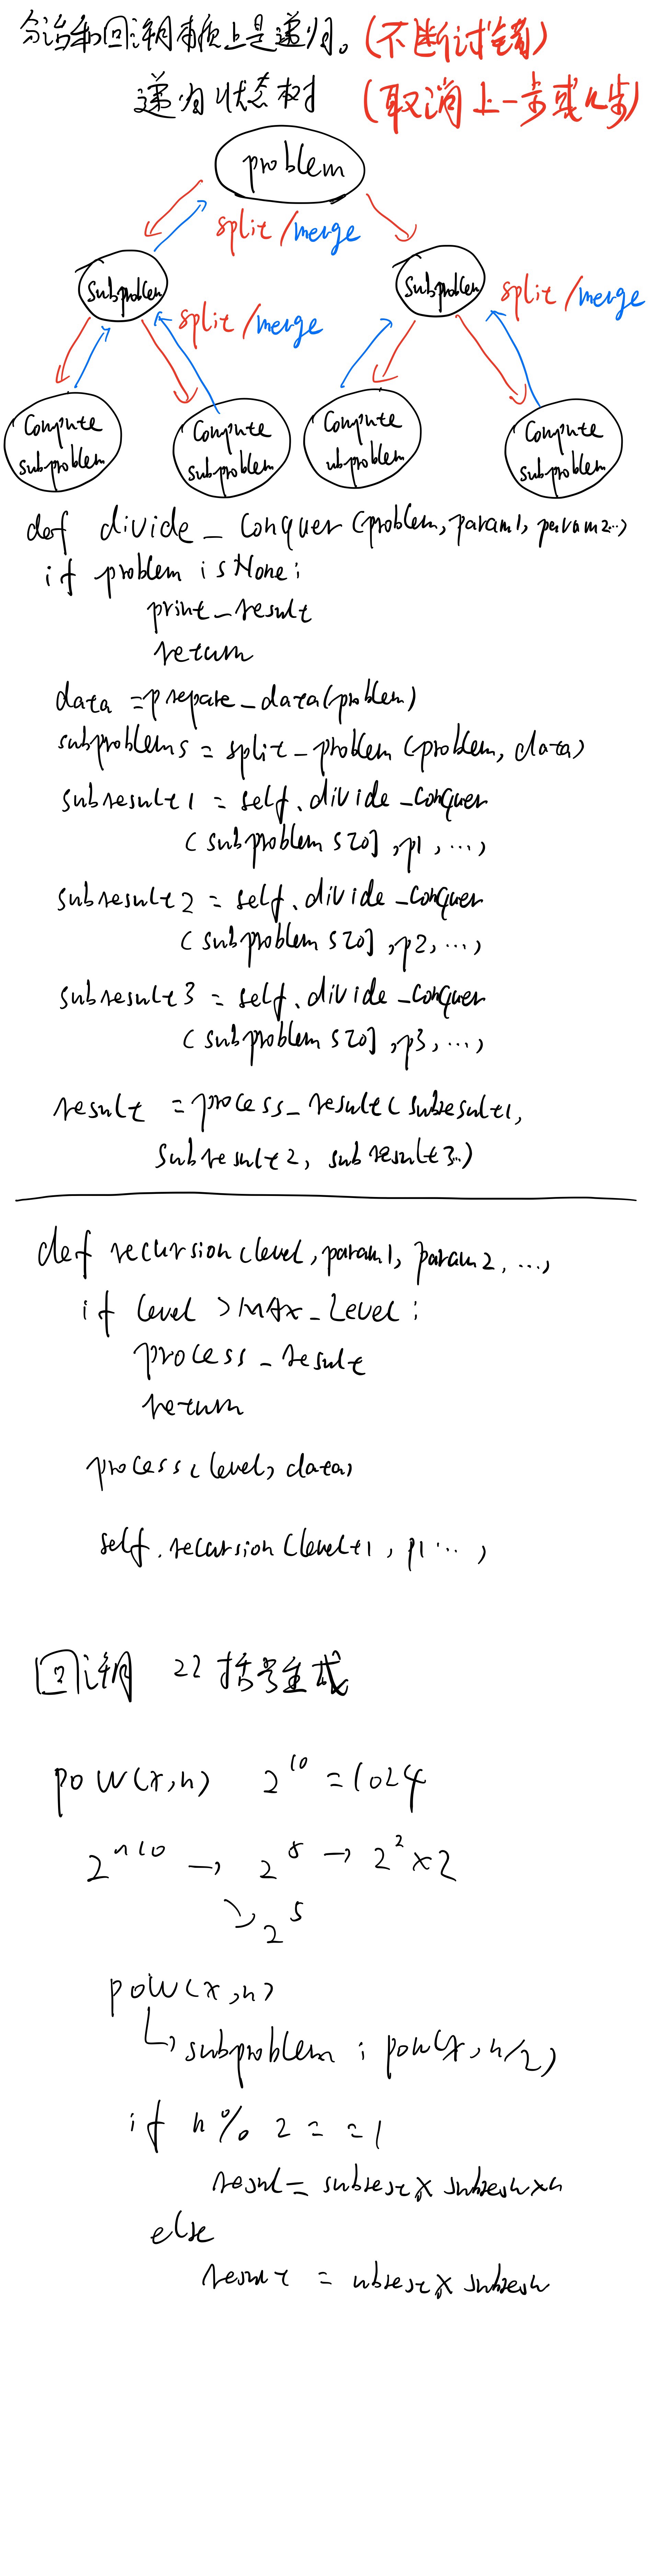 分治和回溯本质上是递归。(不断试错)
递归状态树 (取消上一步或几步)
problem
split/merge
subproblem
subproblem
split/merge
split/merge
Compute
subproblem
Compute
subproblem
Compute
ubproblem
Compute
subproblem
def divide_conquer(problem, param1, param2...)
if problem is None:
print_result
return
data = prepare_data(problem)
subproblems = split_problem(problem, data)
subresult1 = self.divide_conquer
(subproblems[0], p1, ...,
subresult2 = self.divide_conquer
(subproblems[0], p2, ...,
subresult3 = self.divide_conquer
(subproblems[0], p3, ...,
result = process_result(subresult1,
subresult2, subresult3..)
def recursion(level, param1, param2, ...,
if level > MAX_Level:
process_result
return
process(level, data)
self.recursion(level+1, p1...,
回溯 22 括号生成
pow(x,n) 2^10 = 1024
→ 2^2 x 2
2^5
pow(x,n)
↳ subproblem : pow(x, n/2)
if n % 2 == 1
else